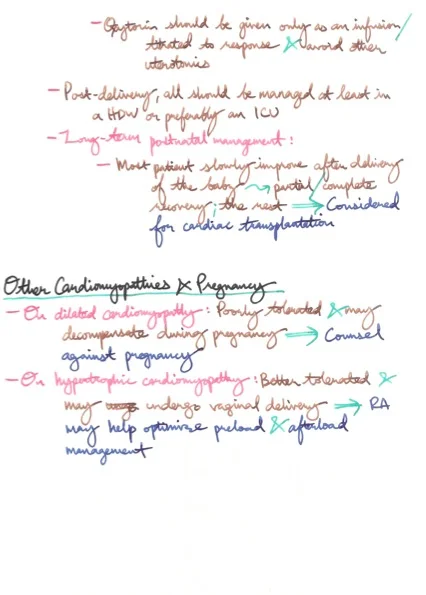 - Oxytocin should be given only as an infusion/
titrated to response & avoid other
uterotonics
- Post-delivery, all should be managed at least in
a HDU or preferably an ICU
- Long-term postnatal management:
- Most patient slowly improve after delivery
of the baby → partial/complete
recovery; the rest → Considered
for cardiac transplantation
Other Cardiomyopathies & Pregnancy
- On dilated cardiomyopathy: Poorly tolerated & may
decompensate during pregnancy → Counsel
against pregnancy
- On hypertrophic cardiomyopathy: Better tolerated &
may undergo vaginal delivery → RA
may help optimize preload & afterload
management